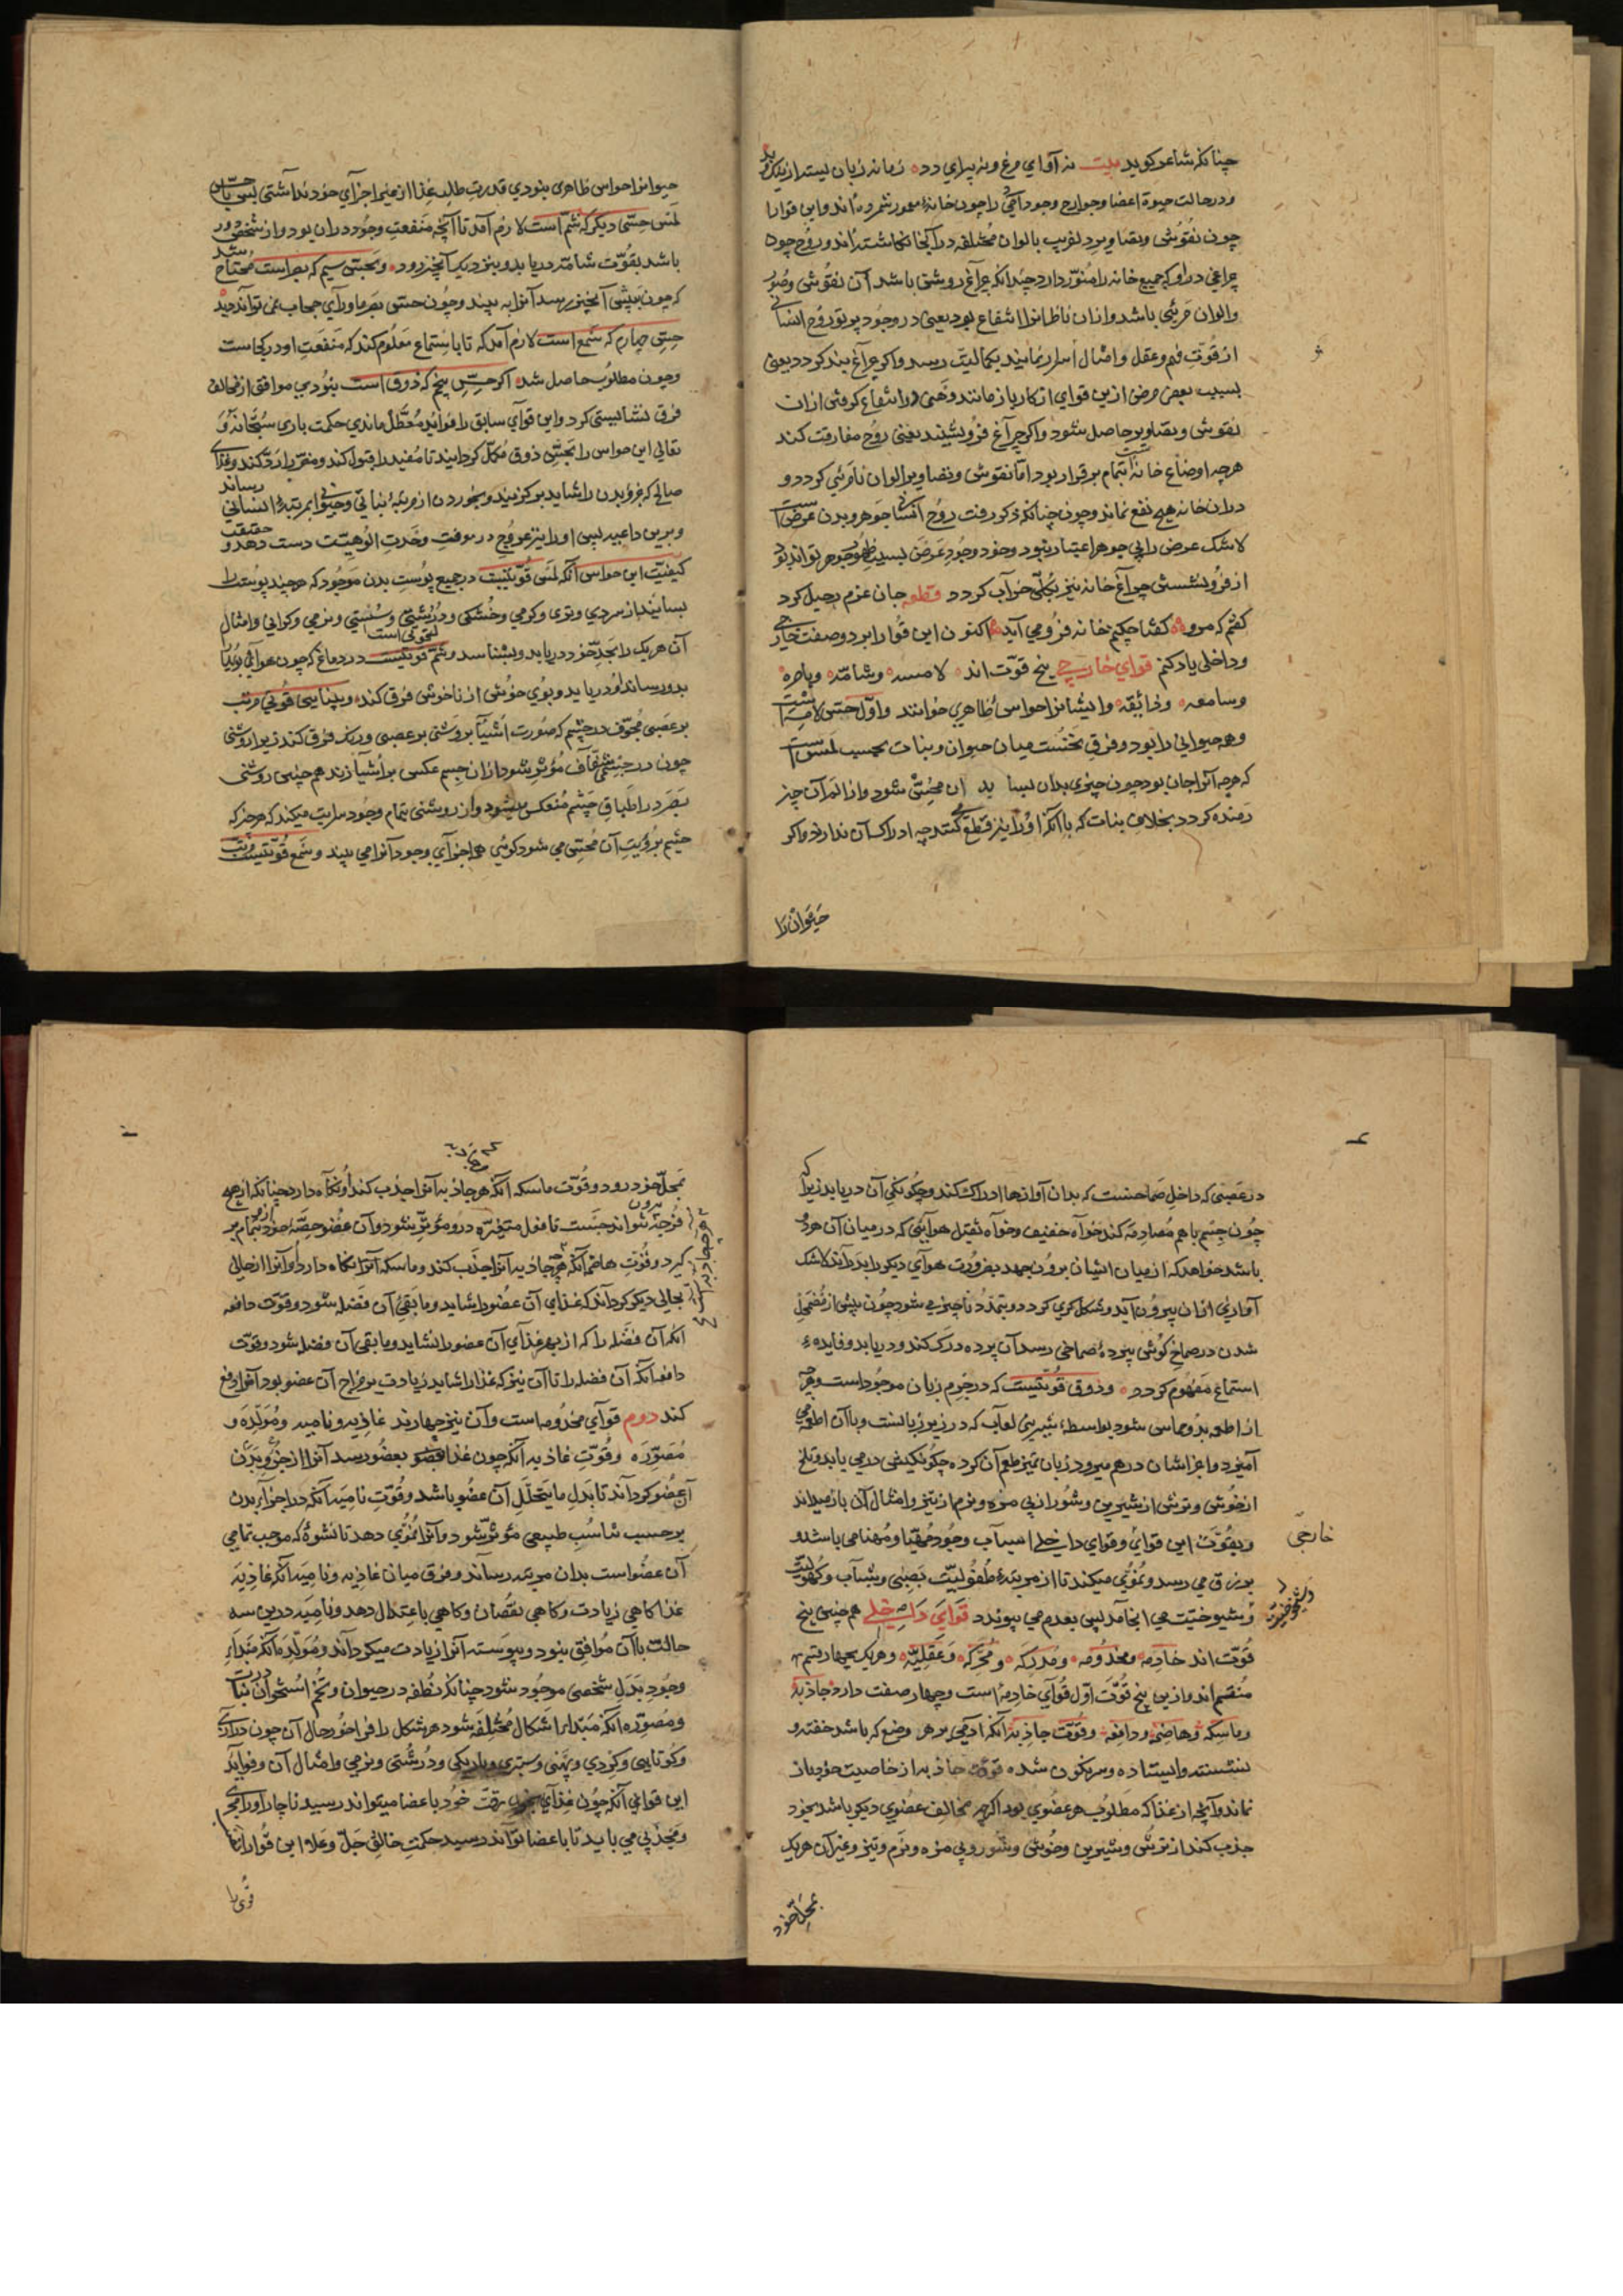 چنانکه شاعر کوید بیت نه آوای مرغ و نه پرای دد زمانه زبان بسته از نیک و بد
و در حالت حیوة اعضا و جوارح وجود آدمی را چون خانهٔ معمور شمرده‌اند و این قوا را
چون نقوش و تصاویر دلفریب بالوان مختلفه در آنجا نکاشته‌اند و روح چون
چراغی در او که جمیع خانه را منوّر دارد چندانکه چراغ روشن باشد آن نقوش و صور
و الوان مرئی باشد و از ان ناظر را انتفاع بود یعنی در وجود پرتو روح انسانی
از قوّت فهم و عقل و امثال بکمالیت رسد و اکر چراغ بند کردد یعنی
بسبب بعض مرض ازین قوای از کار باز مانند و انتفاع کرفتن از ان
نقوش و تصاویر حاصل نشود و اکر چراغ فرو نشیند یعنی روح مفارقت کند
هرچه اوضاع خانه است بتمام برقرار بود امّا نقوش و تصاویر الوان نامرئی کردد و
در ان خانه هیچ نفع نماند و چون چنانکه ذکر رفت روح انسانی جوهر و بدن عرض است
لاشک عرض را بی جوهر اعتبار نبود و خود وجود عرض بسبب ظهور جوهر تواند بود
از فرو نشستن چراغ خانه نیز بکلّی خراب کردد قطعه جان عزم رحیل کرد
کفتم که مرو کفتا چکنم خانه فرو می آید اکنون این قوا را بر دو صفت خارجی
و داخلی یاد کنم قوای خارجی پنج قوّت‌اند لامسه و شامّه و باصره
و سامعه و ذائقه و ایشانرا حواس ظاهری خوانند و اوّل حسّ لامسه است
و همه حیوانی را بود و فرق نخست میان حیوان و نبات بحسب لمس است
که هرچه آنرا جان بود چون چیزی بدان بساید ان محسّ شود و از الم آن چیز
رمنده کردد بخلاف نبات که با آنکه او را نیز قطع کنند چه ادراک آن ندارد و اکر
حیوان را
حیوانرا حواس ظاهری نبودی قدرت طلب غذا از میر اجزای خود نداشتی پس با حسّ
لمس حسّی دیکر که شمّ است لازم آمد تا آنچه منفعت وجود در ان بود و از شخص دور
باشد بقوّت شامّه دریابد و بنزدیک آنچیز رود و بحسّ سیم که بصر است محتاج شد
که چون بپیش آنچیز رسد آنرا ببیند و چون حسّ بصر ماورای حجاب نمی تواند دید
حسّ چهارم که سمع است لازم آمد که تا باستماع معلوم کند که منفعت او در کجاست
و چون مطلوب حاصل شد اکر حسّ پنجم که ذوق است نبودی موافق از مخالف
فرق نشایستی کرد و این قوای سابق را فواید معطّل ماندی حکمت باری سبحانه و
تعالی این حواس را بحسّ ذوق مکمّل کردانید تا مفید را قبول کند و مضرّ را ردّ کند و غذای
صالح که غرو بدن را شاید بر کزیند و بخوردن از مرتبهٔ نباتی و حیوانی بمرتبهٔ انسانی رساند
و برین داعیه پس او را نیز عروج در معرفت وحدت الوهیّت دست دهد و حقیقت
کیفیّت این حواس آنکه لمس قوّتیست در جمیع پوست بدن موجود که هرچند پوست را
بسایند از سردی و تری و کرمی و خشکی و درشتی و سستی و نرمی و کرانی و امثال
آن هریک را بحدّ خود دریابد و بشناسد و شمّ قوّتیست در دماغ که چون هوائی بویا
بدو رساند او دریابد و بوی خوش از ناخوش فرق کند و بینایی قوّتی مرتّب
بر عصبی مجوّف در چشم که صورت اشیا بروشنی بر عصبی و رنگ فرق کند زیرا روشنی
چون در جسمی شفّاف مؤثر شود از ان جسم عکسی بر اشیا زند همچنین روشنی
بصر در اطباق چشم منعکس میشود و از روشنی بتمام وجود سرایت میکند که هرچیز که
چشم برؤیت آن محسّ می شود کوئی همه اجزای وجود آنرا می بیند و سمع قوّتیست مرتّب
در عصبی که داخل صماخست که بدان آوازها ادراک کند و چکونکی آن دریابد زیرا که
چون جسم با هم مصادمه کند خواه خفیف و خواه ثقیل هوایی که در میان آن هر دو
باشد خواهد که از میان ایشان برون جهد بضرورت هوای دیکر را بدراند لاشک
آوازی از ان بیرون آید و شکل کری کردد و بتمدّد ناچیز می شود چون پیش از مضمحل
شدن در صماخ کوش ببردهٔ صماخی رسد آن پرده درک کند و دریابد و فایدهٔ
استماع مفهوم کردد و ذوق قوّتیست که در جرم زبان موجود است و هرچه
از اطعمه بدو مماس شود بواسطهٔ شیرینی لعاب که در زیر زبانست و با آن اطعمه می
آمیزد و اجزاشان در هم میرود زبان تمیز طعم آن کرده چکونکیش در می یابد و تلخ
از خوش و ترش از شیرین و شور از بی مزه و نرم از تیز و امثال آن باز میداند
و بقوّت این قوای و قوای داخلی اسباب وجود مهیّا و مهنا می باشد و
خارجی
برزق می رسد و نموّی میکند تا از مرتبهٔ طفولیّت بصبی و شباب و کهولیّت
و شیوخیّت می انجامد پس بعدم می پیوندد قوای داخلی همچنین پنج
قوّت‌اند خادمه و مخدومه و مدرکه و محرّکه و عقلیّه و هریک بچهار قسم
منقسم‌اند و ازین پنج قوّت اوّل قوای خادمه است و چهار صفت دارد جاذبه
و ماسکه و هاضمه و دافعه و قوّت جاذبه آنکه آدمی بر هر وضع که باشد خفته و
نشسته و ایستاده و سرنکون شده قوّت جاذبه از خاصیت خود باز
نماند و آنچه از غذا که مطلوب هر عضوی بود اکرچه مخالف عضوی دیکر باشد بخود
جذب کند از ترش و شیرین و خوش و شور و بی مزه و نرم و تیز و غیر آن هریک
بمحلّ خود
بمحلّ خود رود و قوّت ماسکه آنکه هرچه جاذبه آنرا جذب کند او نکاه دارد چنانکه از هیچ
فرجه برون نتواند جست تا فعل متغیّره در و مؤثر شود و آن عضو حصّهٔ خود بتمام ازو بر
کیرد و قوّت هاضمه آنکه هرچه جاذبه آنرا جذب کند و ماسکه آنرا نکاه دارد او آنرا از حالی
بحالی دیکر کرداند که غذای آن عضو را شاید و مابقی آن فضله شود و قوّت دافعه
آنکه آن فضله را که از بهر غذای آن عضو را نشاید و مابقی آن فضله شود و قوّت
دافعه آنکه آن فضله را تا آن نیز که غذا را شاید زیادت بر مزاج آن عضو بود آنرا دفع
کند دوم قوای مخدومه است و آن نیز چهارند غاذیه و نامیه و مولّده و
مصوّره و قوّت غاذیه آنکه چون غذا بعضو رسد آنرا از جزو بدن
آن عضو کرداند تا بدل ما یتحلّل آن عضو باشد و قوّت نامیه آنکه در اجزای بدن
بر حسب تناسب طبیعی مؤثر شود و آنرا نموّی دهد تا نشوهٔ که موجب تمامی
آن عضو است بدان مرتبه رساند و فرق میان غاذیه و نامیه آنکه غاذیه
غذا کاهی زیادت و کاهی نقصان و کاهی باعتدال دهد و نامیه درین سه
حالت با آن موافق نبود و پیوسته آنرا زیادت میکرداند و مولّده آنکه مبداء
وجود بدل شخصی موجود شود چنانکه نطفه در حیوان و تخم استخوان در نبات
و مصوّره آنکه مبتدا را اشکال مختلفه شود هر شکل را فراخور حال آن چون درازی
و کوتاهی و کردی و پهنی و ستبری و باریکی و درشتی و نرمی و امثال آن و فواید
این قوا آنکه چون غذای بقوّت خود باعضا میتواند رسید ناچار او را مجری
و مجذبی می باید تا باعضا تواند رسید حکمت خالق جلّ و علا این قوا را
قوی را